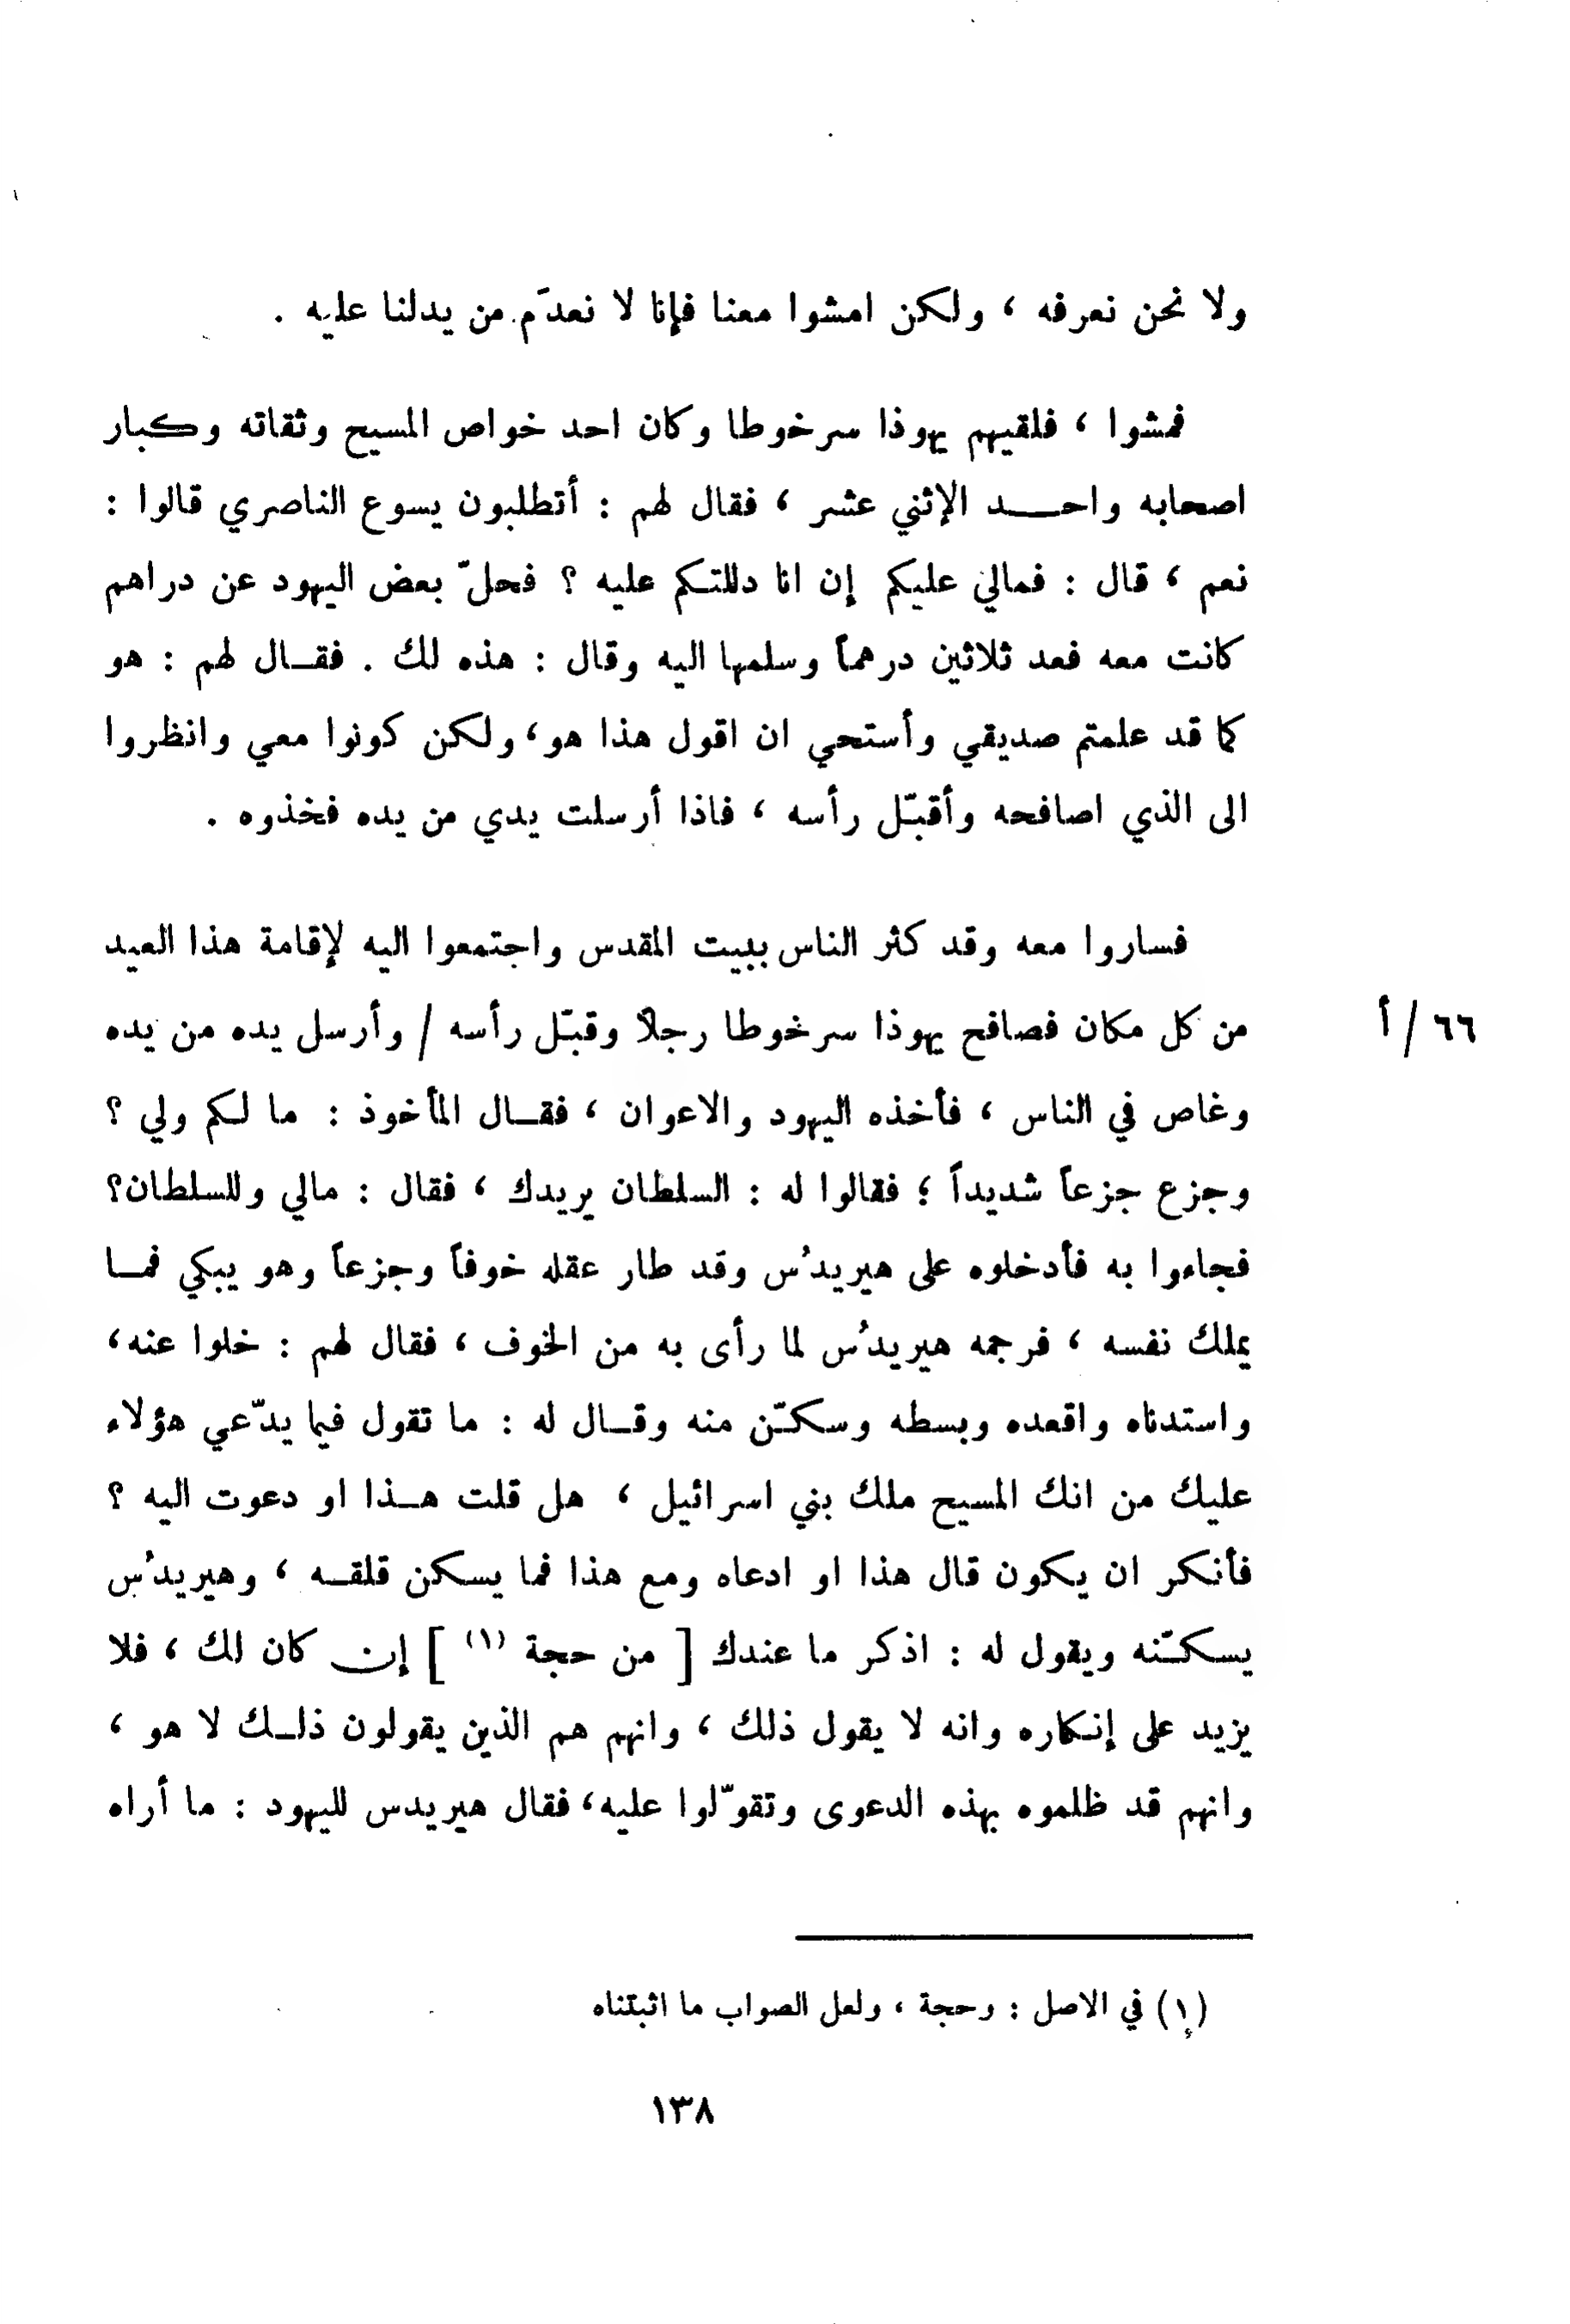 ولا نحن نعرفه ، ولكن امشوا معنا فإنا لا نعدَم من يدلنا عليه .
فمشوا ، فلقيهم يهوذا سرخوطا وكان احد خواص المسيح وثقاته وكبار
اصحابه واحد الإثني عشر ، فقال لهم : أتطلبون يسوع الناصري قالوا :
نعم ، قال : فمالي عليكم إن انا دللتكم عليه ؟ فحلّ بعض اليهود عن دراهم
كانت معه فعد ثلاثين درهماً وسلمها اليه وقال : هذه لك . فقال لهم : هو
كما قد علمتم صديقي وأستحي ان اقول هذا هو، ولكن كونوا معي وانظروا
الى الذي اصافحه وأقبّل رأسه ، فاذا أرسلت يدي من يده فخذوه .
فساروا معه وقد كثر الناس ببيت المقدس واجتمعوا اليه لإقامة هذا العيد
من كل مكان فصافح يهوذا سرخوطا رجلاً وقبّل رأسه / وأرسل يده من يده
٦٦ / أ
وغاص في الناس ، فأخذه اليهود والاعوان ، فقال المأخوذ : ما لكم ولي ؟
وجزع جزعاً شديداً ؛ فقالوا له : السلطان يريدك ، فقال : مالي وللسلطان؟
فجاءوا به فأدخلوه على هيريدُس وقد طار عقله خوفاً وجزعاً وهو يبكي فما
يملك نفسه ، فرحمه هيريدُس لما رأى به من الخوف ، فقال لهم : خلوا عنه،
واستدناه واقعده وبسطه وسكّن منه وقال له : ما تقول فيما يدّعي هؤلاء
عليك من انك المسيح ملك بني اسرائيل ، هل قلت هذا او دعوت اليه ؟
فأنكر ان يكون قال هذا او ادعاه ومع هذا فما يسكن قلقه ، وهيريدُس
يسكّنه ويقول له : اذكر ما عندك [ من حجة (١) ] إن كان لك ، فلا
يزيد على إنكاره وانه لا يقول ذلك ، وانهم هم الذين يقولون ذلك لا هو ،
وانهم قد ظلموه بهذه الدعوى وتقوّلوا عليه، فقال هيريدس لليهود : ما أراه
(١) في الاصل : وحجة ، ولعل الصواب ما اثبتناه
١٣٨